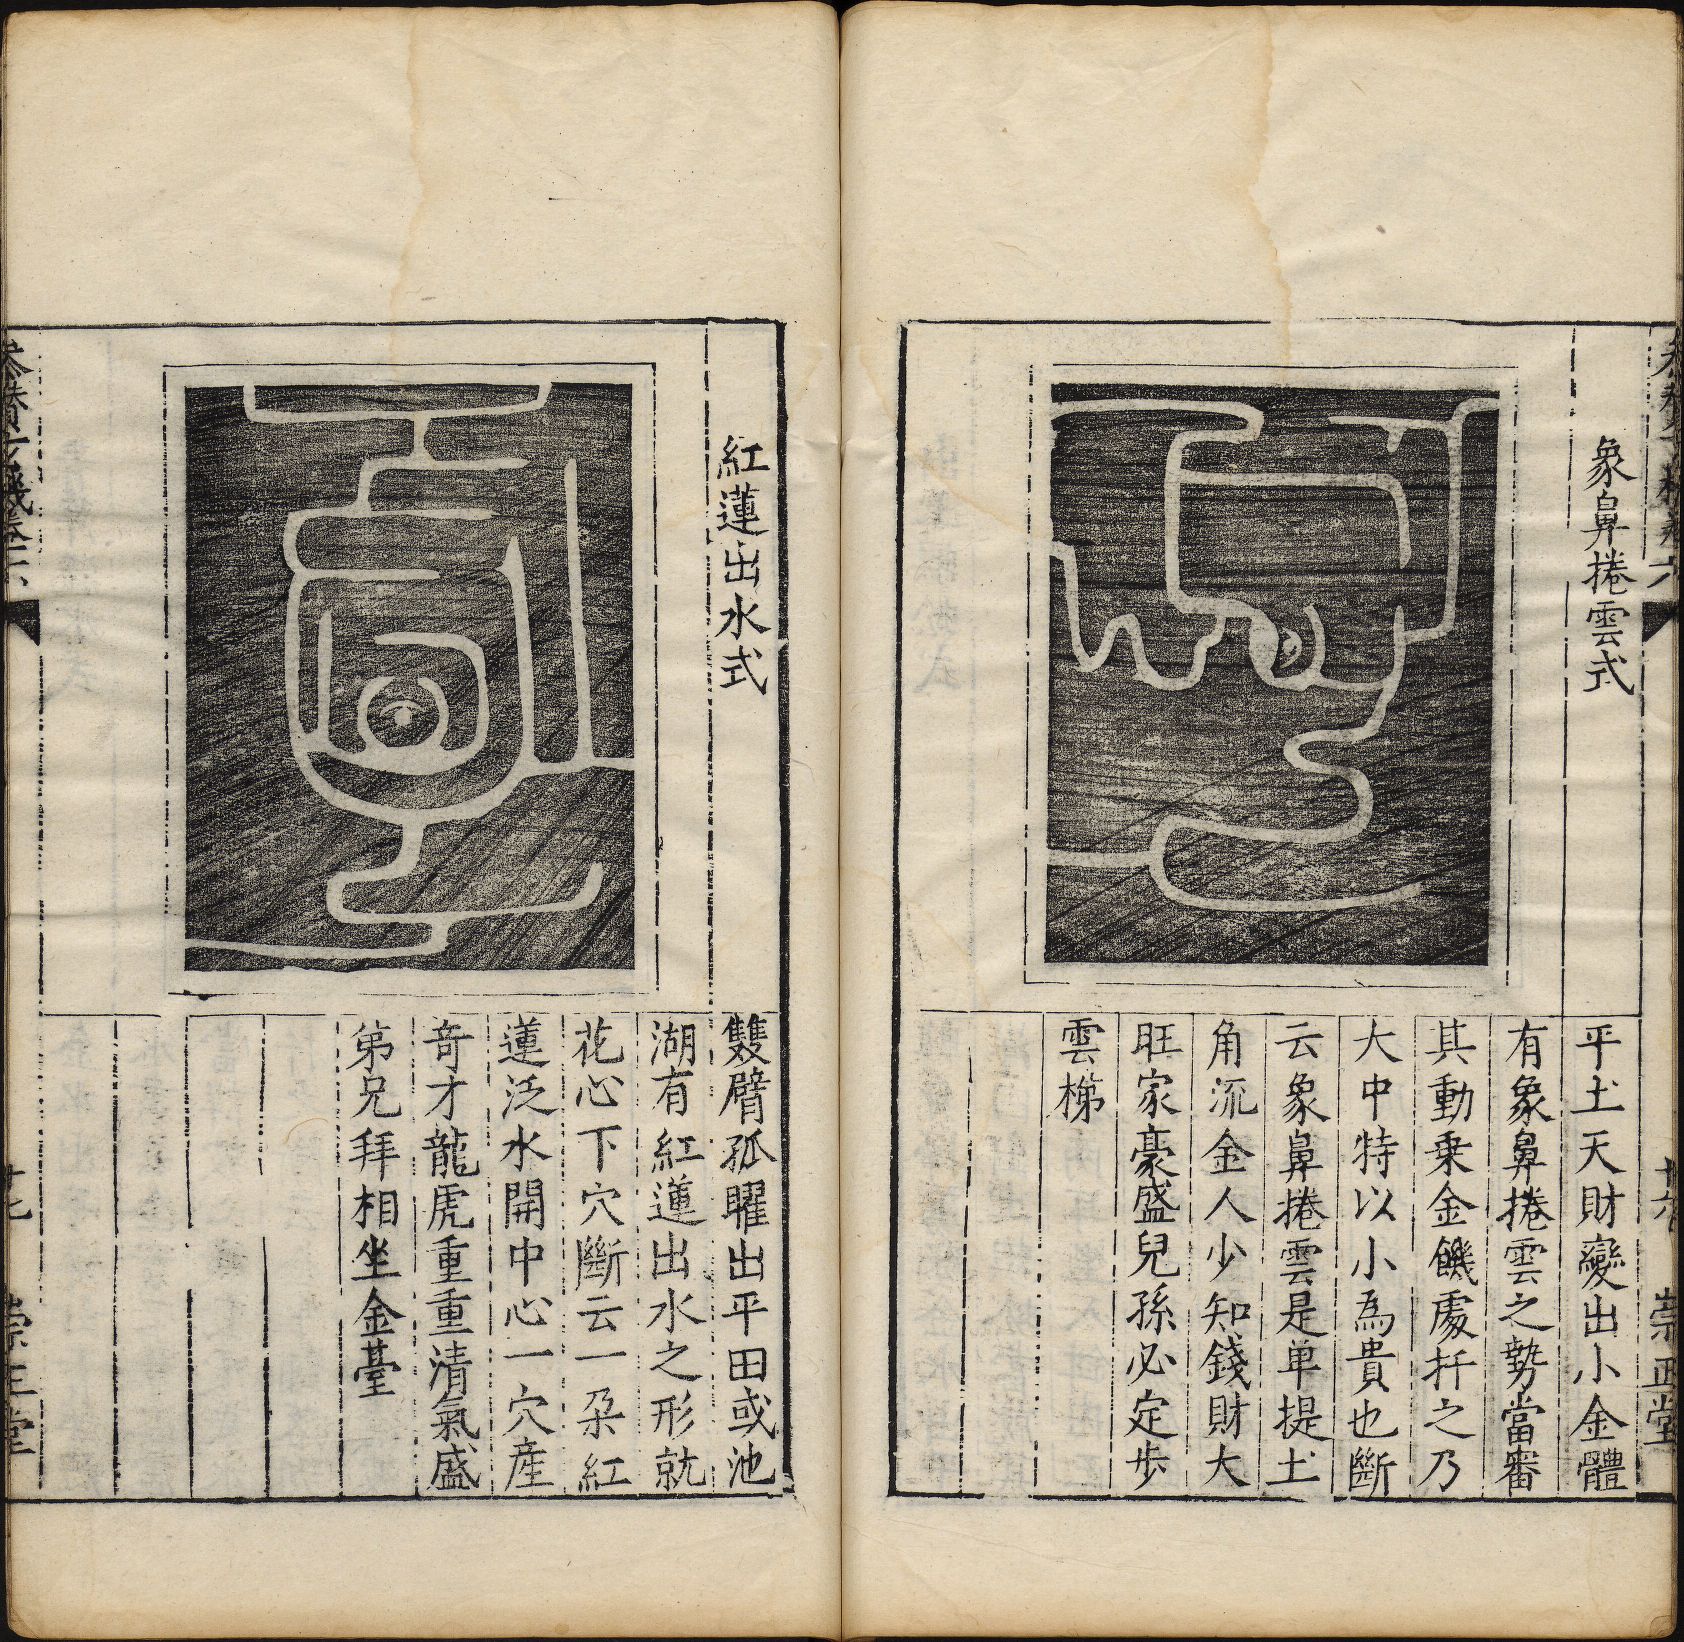 象鼻捲雲式
平土天財變出小金體
有象鼻捲雲之勢當審
其動乗金饑處扦之乃
大中特以小為貴也斷
云象鼻捲雲是单提土
角流金人少知錢財大
旺家豪盛兒孫必定歩
雲梯
廿六
崇正堂
紅蓮出水式
雙臂孤曜出平田或池
湖有紅蓮出水之形就
花心下穴斷云一朶紅
蓮泛水開中心一穴産
竒才龍虎重重清氣盛
弟兄拜相坐金臺
廿七
崇正堂